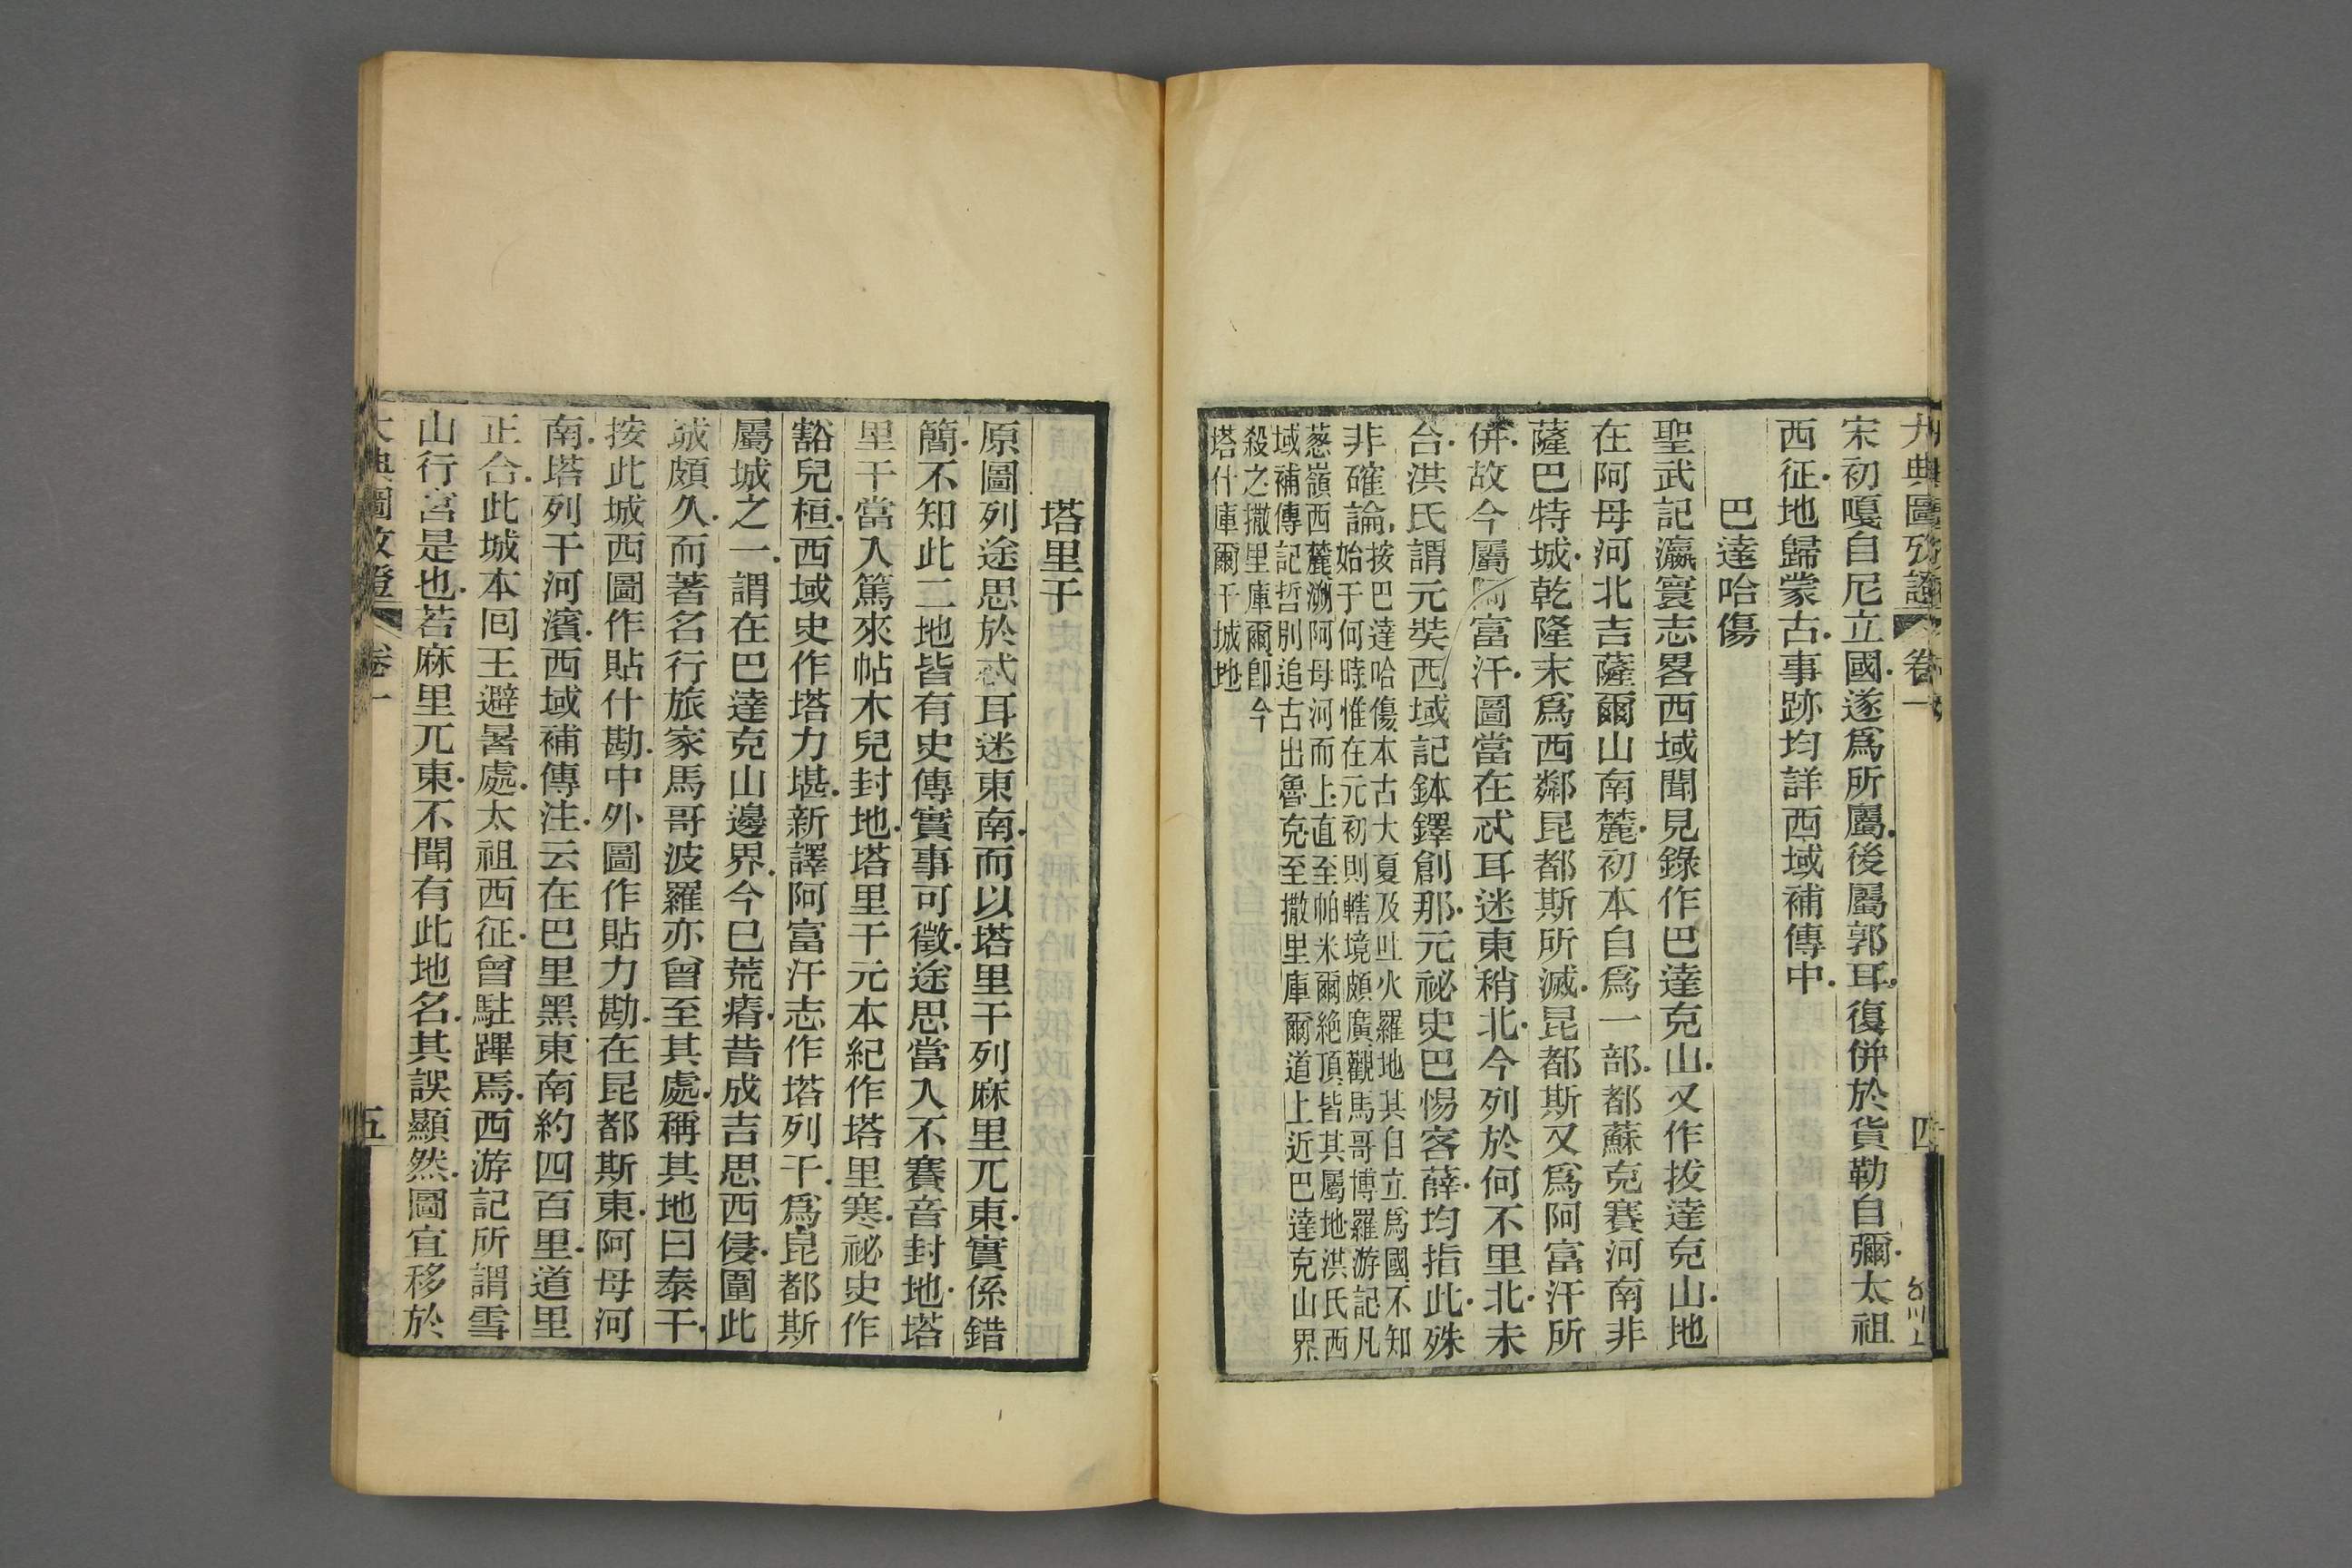 大典圖攷證 卷一 四
宋初嘎自尼立國遂爲所屬後屬郭耳復併於貨勒自彌太祖
西征地歸蒙古事跡均詳西域補傳中
巴達哈傷
聖武記瀛寰志畧西域聞見錄作巴達克山又作拔達克山地
在阿母河北吉薩爾山南麓初本自爲一部都蘇克賽河南非
薩巴特城乾隆末爲西鄰昆都斯所滅昆都斯又爲阿富汗所
併故今屬阿富汗圖當在忒耳迷東稍北今列於何不里北未
合洪氏謂元奘西域記鉢鐸創那元祕史巴惕客薛均指此殊
非確論按巴達哈傷本古大夏及吐火羅地其自立爲國不知
始于何時惟在元初則轄境頗廣觀馬哥博羅游記凡
葱嶺西麓溯阿母河而上直至帕米爾絶頂皆其屬地洪氏西
域補傳記哲別追古出魯克至撒里庫爾道上近巴達克山界
殺之撒里庫爾卽今
塔什庫爾干城地
塔里干
原圖列途思於忒耳迷東南而以塔里干列麻里兀東實係錯
簡不知此二地皆有史傳實事可徵途思當入不賽音封地塔
里干當入篤來帖木兒封地塔里干元本紀作塔里寒祕史作
豁兒桓西域史作塔力堪新譯阿富汗志作塔列干爲昆都斯
屬城之一謂在巴達克山邊界今已荒瘠昔成吉思西侵圍此
城頗久而著名行旅家馬哥波羅亦曾至其處稱其地曰泰干
按此城西圖作貼什勘中外圖作貼力勘在昆都斯東阿母河
南塔列干河濱西域補傳注云在巴里黑東南約四百里道里
正合此城本囘王避暑處太祖西征曾駐蹕焉西游記所謂雪
山行宮是也若麻里兀東不聞有此地名其誤顯然圖宜移於
大典圖攷證 卷一 五